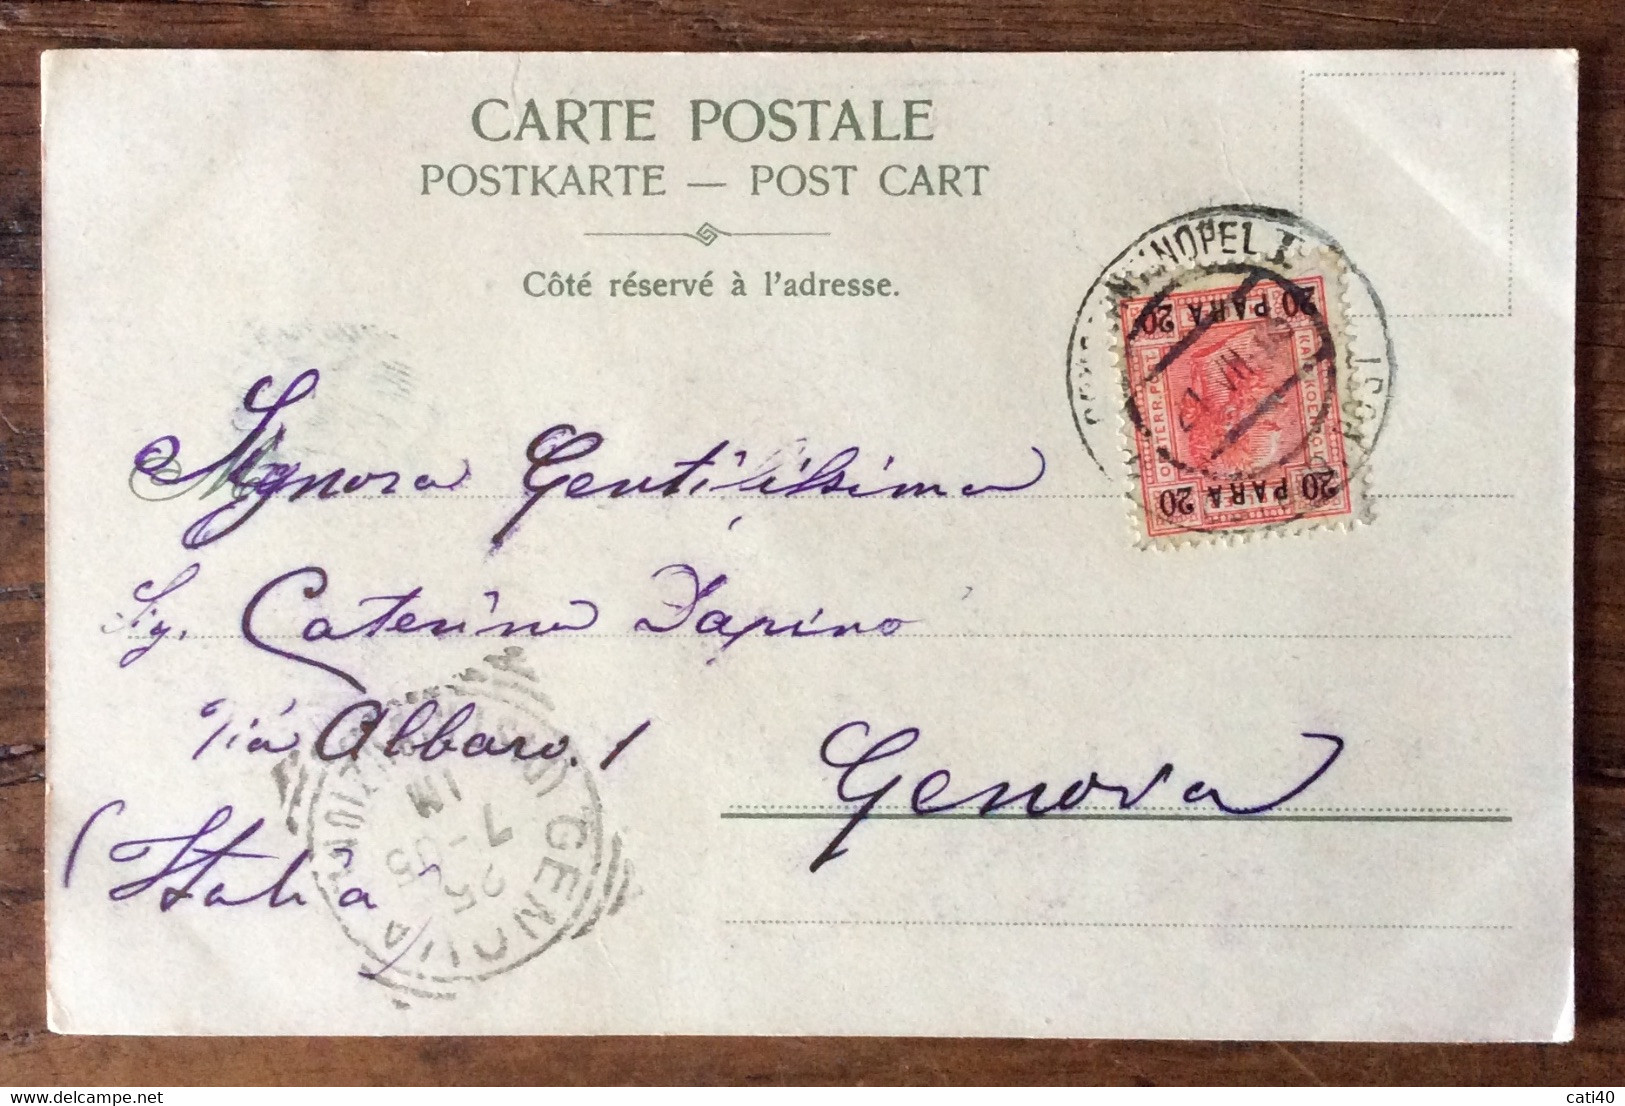 CARTE POSTALE
POSTKARTE — POST CART
Côté réservé à l'adresse.
NOPEL I
20 PARA 20
OESTERR. POST
20 PARA 20
Signora Gentilissima
Sig. Caterina Dapino
Via Albaro. 1
Genova
(Italia)
GENOVA
25
7-05
1M
cati40